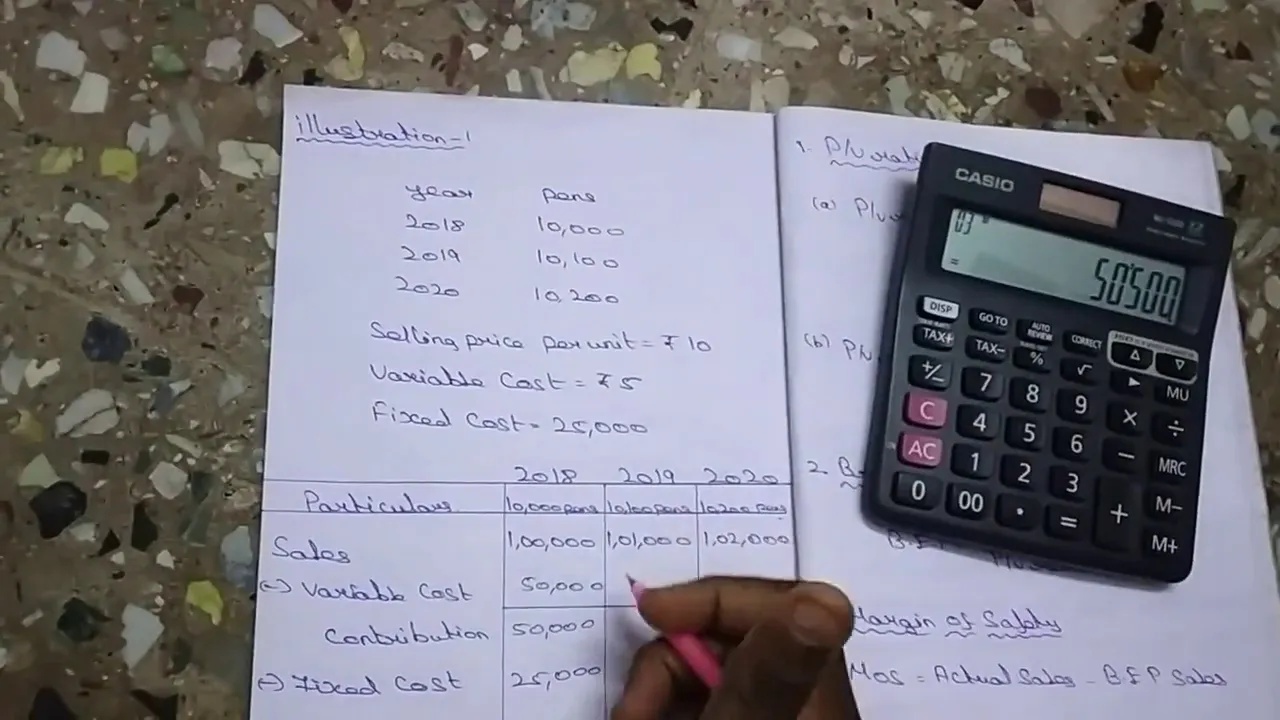 illustration-1
year pens
2018 10,000
2019 10,100
2020 10,200
Selling price per unit = ₹10
Variable Cost = ₹5
Fixed Cost = 25,000
2018 2019 2020
Particulars 10,000 pens 10,100 pens 10,200 pens
Sales 1,00,000 1,01,000 1,02,000
(-) Variable Cost 50,000
Contribution 50,000
(-) Fixed Cost 25,000
1. P/V
(a) P/V
(b) P/V
2.
Margin of Safety
MOS = Actual Sales - BEP Sales
CASIO
03
= 50'500
DISP GO TO AUTO REVIEW CORRECT
TAX+ TAX- % √ ▶ MU
+/- 7 8 9 × ÷
C 4 5 6 − MRC
AC 1 2 3 + M-
0 00 · = M+